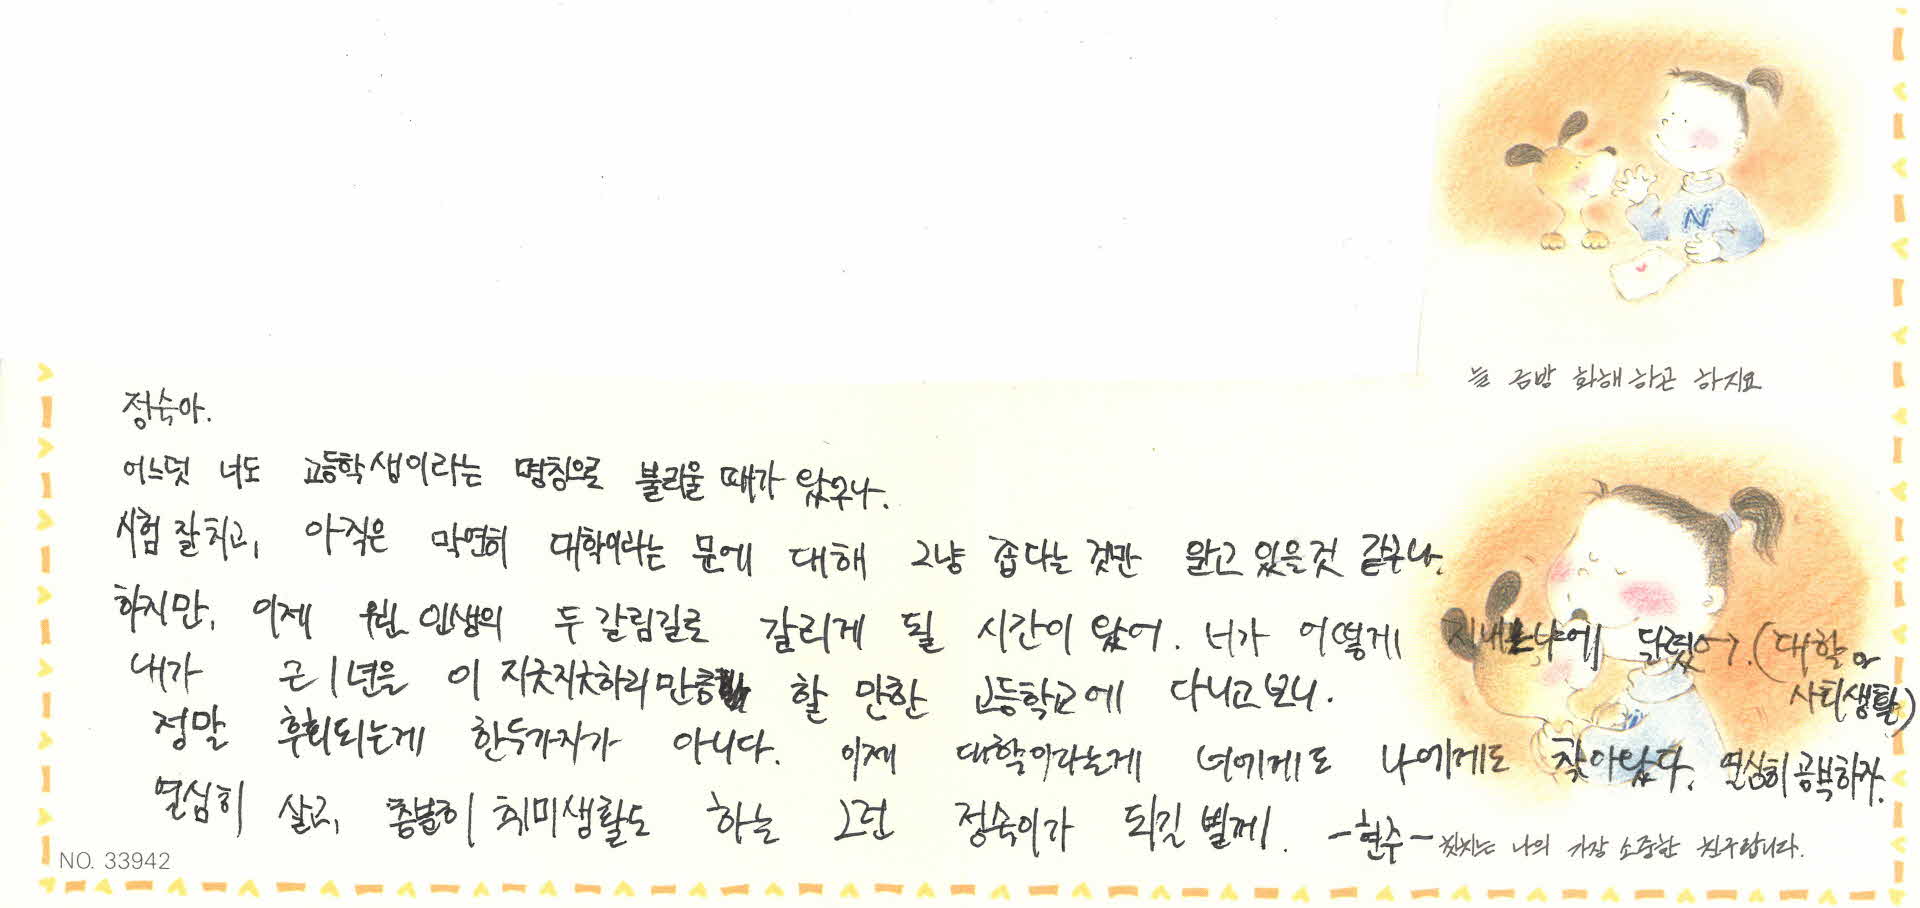 늘 금방 화해 하곤 하지요
정숙아.
어느덧 너도 고등학생이라는 명칭으로 불리울 때가 왔구나.
시험 잘 치고, 아직은 막연히 대학이라는 문에 대해 그냥 좁다는 것만 알고 있을것 같구나.
하지만, 이제 인생의 두 갈림길로 갈리게 될 시간이 왔어. 너가 어떻게 지내느냐에 달렸어.(대학과
사회생활)
내가 근 1년을 이 지긋지긋하리만큼 할 만한 고등학교에 다니고보니.
정말 후회되는게 한두가지가 아니다. 이제 대학이라는게 너에게도 나에게도 찾아왔다. 열심히 공부하자.
열심히 살고, 충불히 취미생활도 하는 그런 정숙이가 되길 빌께. -현주-
나의 가장 소중한 친구랍니다.
NO. 33942